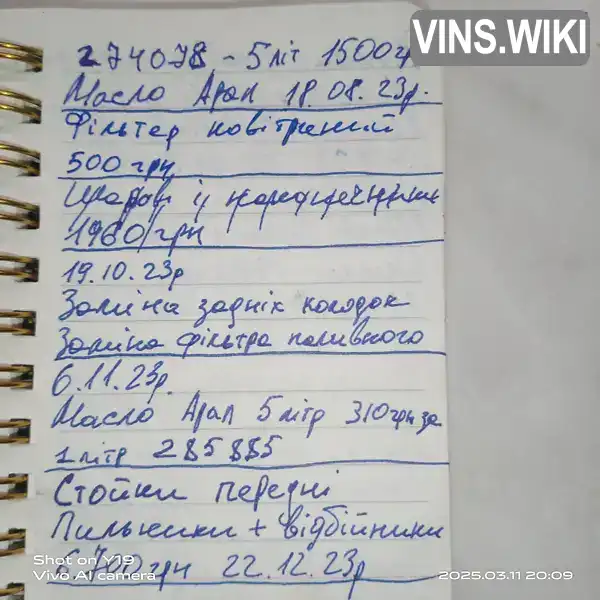 VINS.WIKI
274078 - 5 літ 1500гр
Масло Арал 18.08.23р.
Фільтер повітряний
500 грн
Шарові й наконечники
1960 грн
19.10.23р
Заміна задніх колодок
Заміна фільтра паливного
6.11.23р.
Масло Арал 5 літр 310грн за
1 літр 285885
Стойки передні
Пильники + відбійники
6.700 грн 22.12.23р
Shot on Y19
Vivo AI camera
2025.03.11 20:09